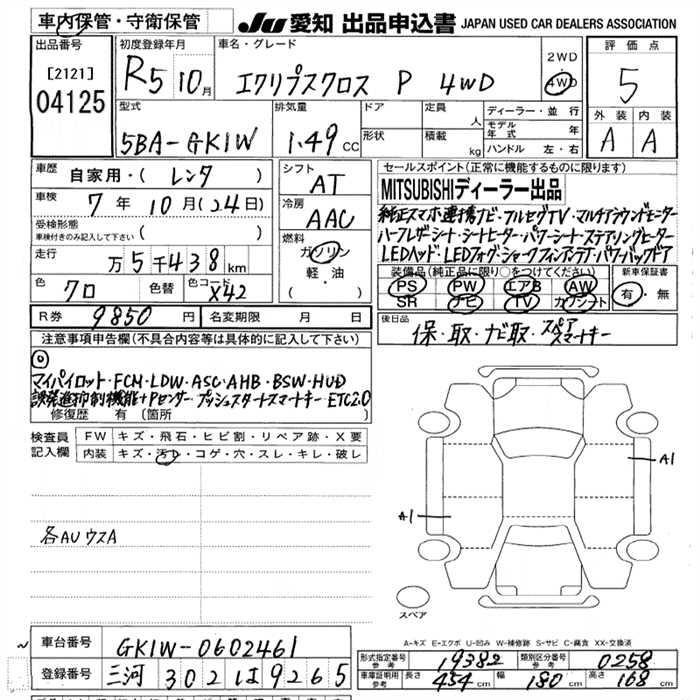 車内保管・守衛保管
JU 愛知 出品申込書 JAPAN USED CAR DEALERS ASSOCIATION
出品番号
[2121]
04125
初度登録年月
R5 10月
車名・グレード
エクリプスクロス P 4WD
2WD
4WD
評価点
5
外装 内装
A A
型式
5BA-GK1W
排気量
1.49 cc
ドア
形状
定員 人
積載 kg
ディーラー・並行
モデル年式 年
ハンドル 左・右
車歴
自家用・(レンタ)
車検
7年 10月(24日)
受検形態
車検付きのみ記入して下さい ( )
走行
万5千438km
色 クロ 色替 色コード X42
シフト
AT
冷房
AAC
燃料
ガソリン
軽・油
セールスポイント(正常に機能するものに限ります)
MITSUBISHIディーラー出品
純正スマホ連携ナビ・フルセグTV・マルチアラウンドモニター
ハーフレザーシート・シートヒーター・パワーシート・ステアリングヒーター
LEDヘッド・LEDフォグ・シャークフィンアンテナ・パワーバックドア
装備品(純正品に限り○をつけてください)
PS PW エアB AW
SR ナビ TV カワシート
新車保証書
有・無
R券 9850円 名変期限 月 日
後日品
保・取・ナビ取・スペアスマートキー
注意事項申告欄(不具合内容等は具体的に記入して下さい)
◎
マイパイロット・FCM・LDW・ASC・AHB・BSW・HUD
誤発進抑制機能+Pセンサー・プッシュスタートスマートキー・ETC2.0
修復歴 有 (箇所 )
検査員記入欄
FW キズ・飛石・ヒビ割・リペア跡・X要
内装 キズ・汚レ・コゲ・穴・スレ・キレ・破レ
各AUウスA
A1
A1
スペア
A-キズ E-エクボ U-凹み W-補修跡 S-サビ C-腐食 XX-交換済
車台番号 GK1W-0602461
登録番号 三河 302 は 9265
形式指定番号 参考 19382 類別区分番号 参考 0258
車庫証明用 参考 長さ 454cm 幅 180cm 高さ 168cm